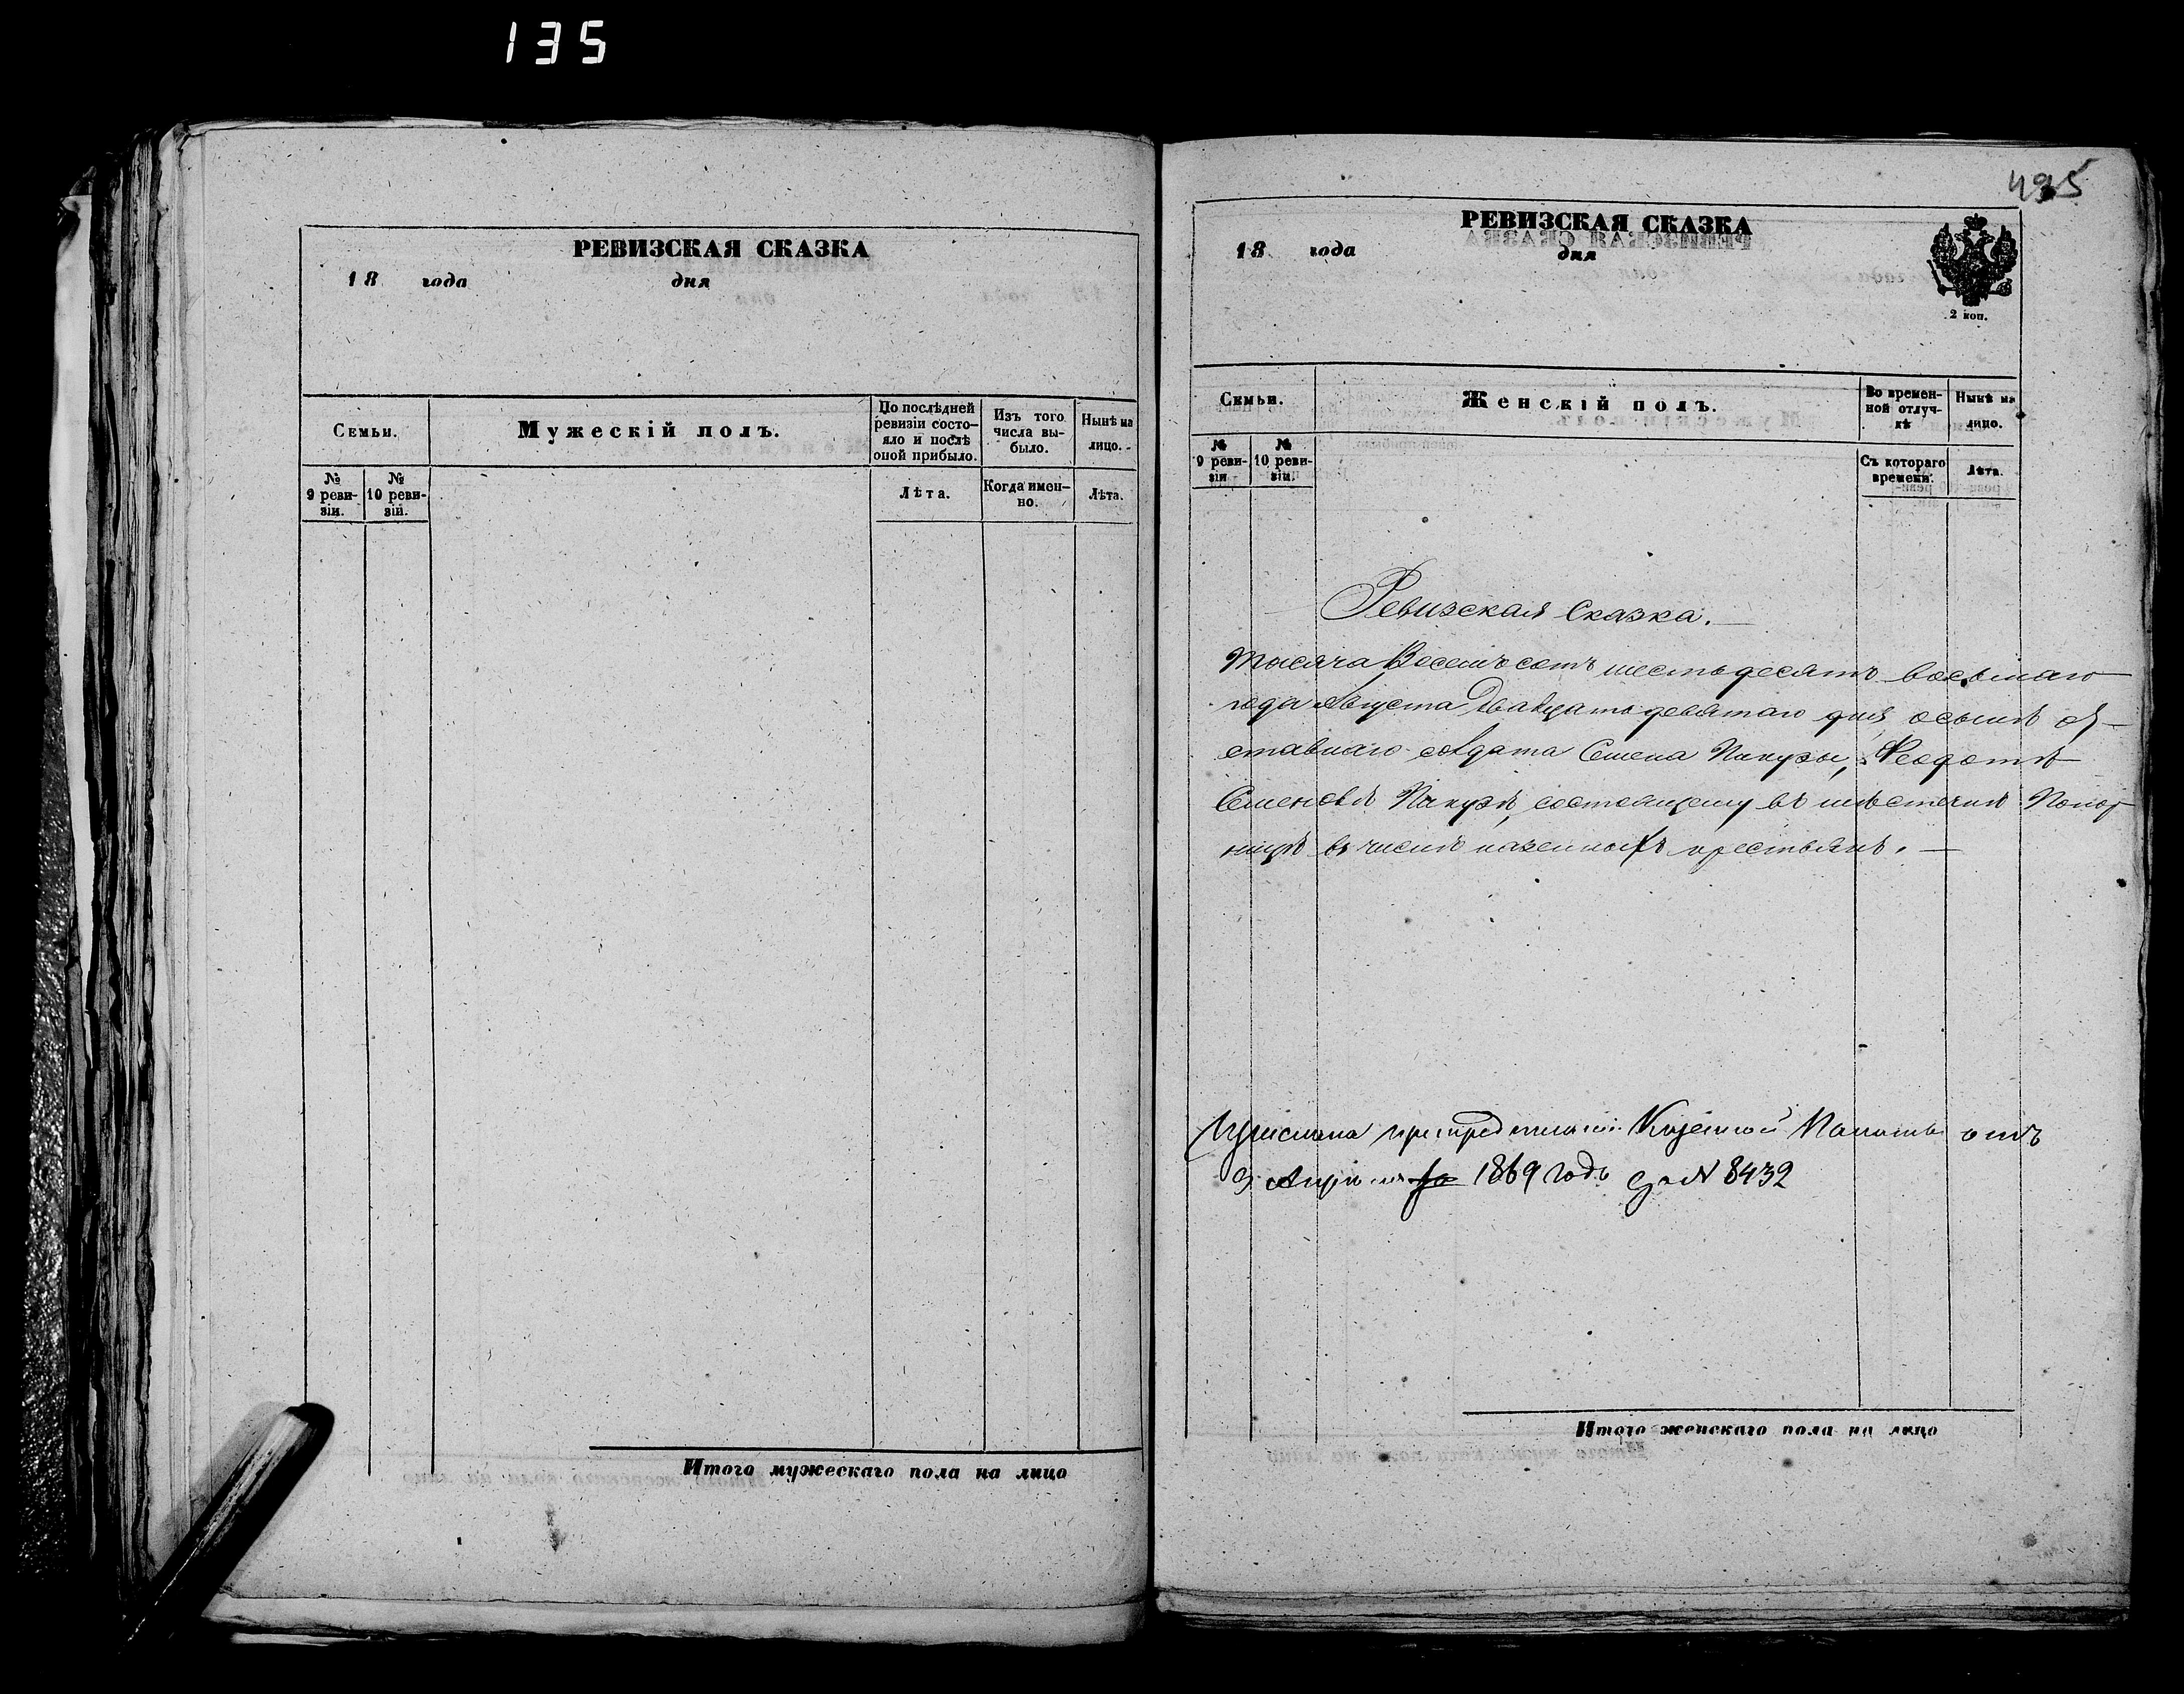 135
РЕВИЗСКАЯ СКАЗКА
18 года дня
Семьи.
Мужескій полъ.
По послѣдней ревизіи состояло и послѣ оной прибыло.
Изъ того числа выбыло.
Нынѣ на лицо.
№ 9 ревизіи.
№ 10 ревизіи.
Лѣта.
Когда именно.
Лѣта.
Итого мужескаго пола на лицо
495
РЕВИЗСКАЯ СКАЗКА
18 года дня
2 коп.
Семьи.
Женскій полъ.
Во временной отлучкѣ
Нынѣ на лицо.
№ 9 ревизіи
№ 10 ревизіи.
Съ котораго времени.
Лѣта.
Ревизская Сказка.
Тысяча Восемьсотъ шестьдесятъ восьмаго
года Августа Двадцать девятаго дня, о сынѣ от-
ставнаго солдата Семена Пикузы, Ѳеодотѣ
Семеновѣ Пикузѣ, состоящему въ мѣстечкѣ Понор-
ницѣ въ числѣ казенныхъ крестьянъ.
Прислана при предписаніи Казенной Палаты отъ
9 Апрѣля 1869 года за № 8432
Итого женскаго пола на лицо